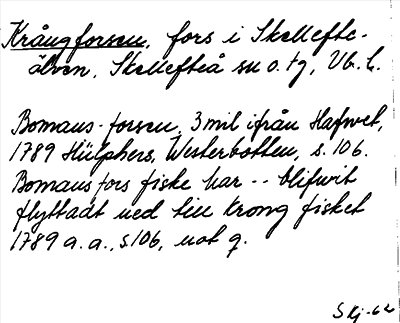 Krångforsen, fors i Skellefte-
älven, Skellefteå sn o. tg, Vb. l.
Bomans-forsen, 3 mil ifrån Hafwet,
1789 Hülphers, Westerbotten, s. 106.
Bomans fors fiske har -- blifwit
flyttadt ned till Krong fisket
1789 a. a., s 106, not q.
SKj-62